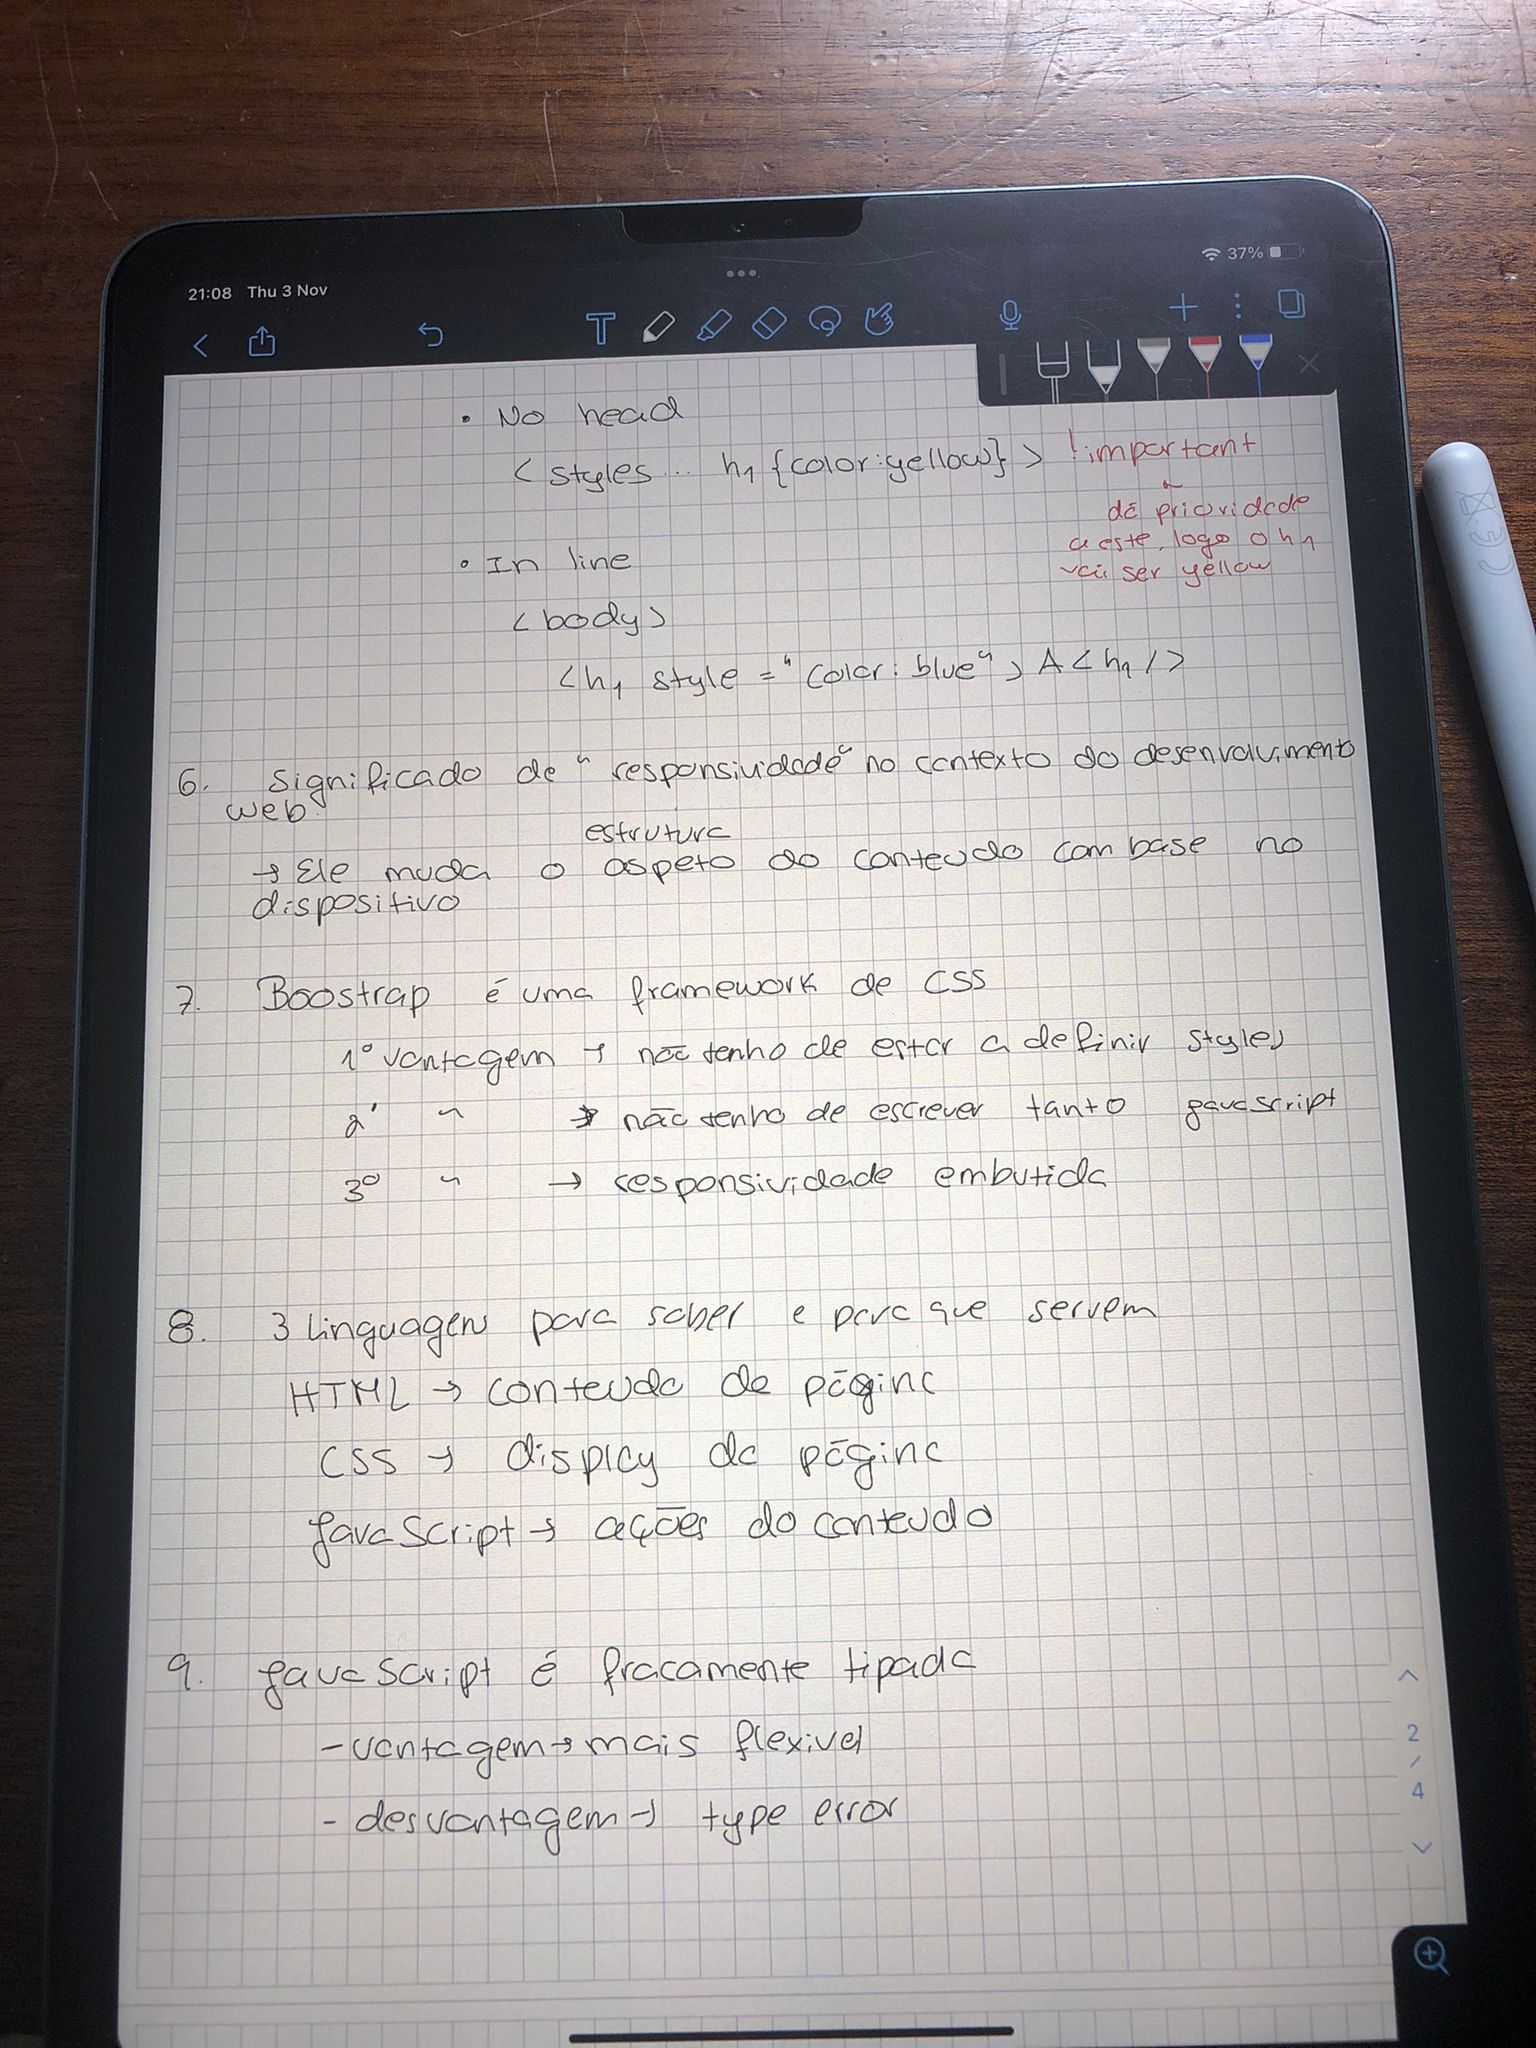 21:08 Thu 3 Nov
37%
• No head
<styles... h1 {color:yellow}> !important
dá prioridade
a este, logo o h1
vai ser yellow
• In line
<body>
<h1 style = "color: blue"> A <h1/>
6. Significado de "responsividade" no contexto do desenvolvimento
web.
estrutura
→ Ele muda o aspeto do conteudo com base no
dispositivo
7. Boostrap é uma framework de CSS
1º vantagem → não tenho de estar a definir styles
2' " → não tenho de escrever tanto javascript
3º " → responsividade embutida
8. 3 linguagens para saber e para que servem
HTML → conteudo de página
CSS → display da página
JavaScript → ações do conteudo
9. JavaScript é fracamente tipada
- vantagem → mais flexivel
- desvantagem → type error
2
/
4